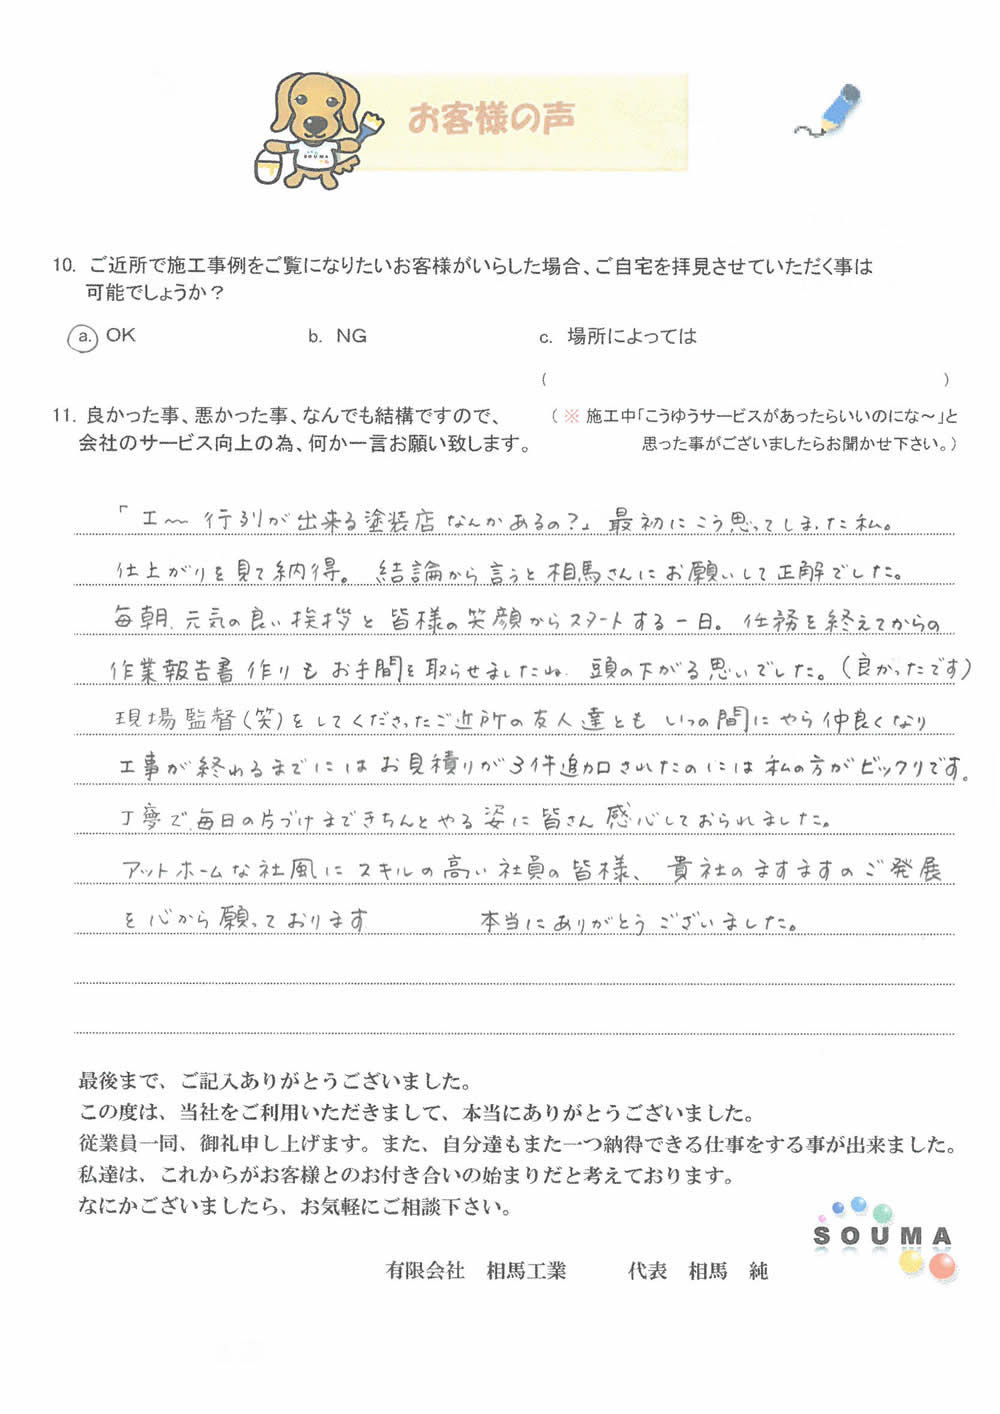 お客様の声
SOUMA
10. ご近所で施工事例をご覧になりたいお客様がいらした場合、ご自宅を拝見させていただく事は
可能でしょうか？
a. OK b. NG c. 場所によっては
( )
11. 良かった事、悪かった事、なんでも結構ですので、 （ ※ 施工中「こうゆうサービスがあったらいいのにな～」と
会社のサービス向上の為、何か一言お願い致します。 思った事がございましたらお聞かせ下さい。）
「エ～ 行列が出来る塗装店なんかあるの?」最初にこう思ってしまった私。
仕上がりを見て納得。 結論から言うと相馬さんにお願いして正解でした。
毎朝、元気の良い挨拶と皆様の笑顔からスタートする一日。任務を終えてからの
作業報告書作りもお手間を取らせましたね。頭の下がる思いでした。（良かったです）
現場監督（笑）をしてくださったご近所の友人達とも いつの間にやら仲良くなり
工事が終わるまでにはお見積りが3件追加されたのには私の方がビックリです。
丁寧で、毎日の片づけまできちんとやる姿に皆さん感心しておられました。
アットホームな社風にスキルの高い社員の皆様、貴社のますますのご発展
を心から願っております 本当にありがとうございました。
最後まで、ご記入ありがとうございました。
この度は、当社をご利用いただきまして、本当にありがとうございました。
従業員一同、御礼申し上げます。また、自分達もまた一つ納得できる仕事をする事が出来ました。
私達は、これからがお客様とのお付き合いの始まりだと考えております。
なにかございましたら、お気軽にご相談下さい。
SOUMA
有限会社 相馬工業 代表 相馬 純